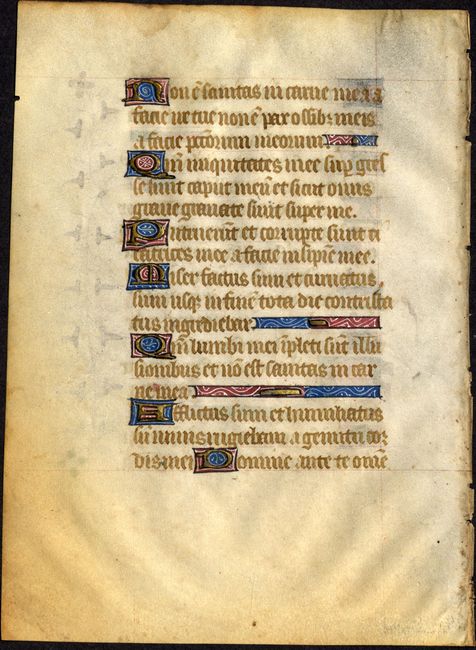 Non ē sanitas in carne mea a
facie ire tue non ē pax ossibꝫ meis
a facie pctorum meorum
Qm̄ iniquitates mee sup̄ gres
se sunt caput meū et sicut onus
graue grauate sunt super me.
Putruerūt et corrupte sunt ci
catrices mee a facie insipiē mee.
Miser factus sum et curuatus
sum usqꝫ in finē tota die contrista
tus ingrediebar
Qm̄ lumbi mei īpleti sūt illu
sionibus et nō est sanitas in car
ne mea
Afflictus sum et humiliatus
sū nimis rugiebam a gemitu cor
dis mei Domine ante te omē